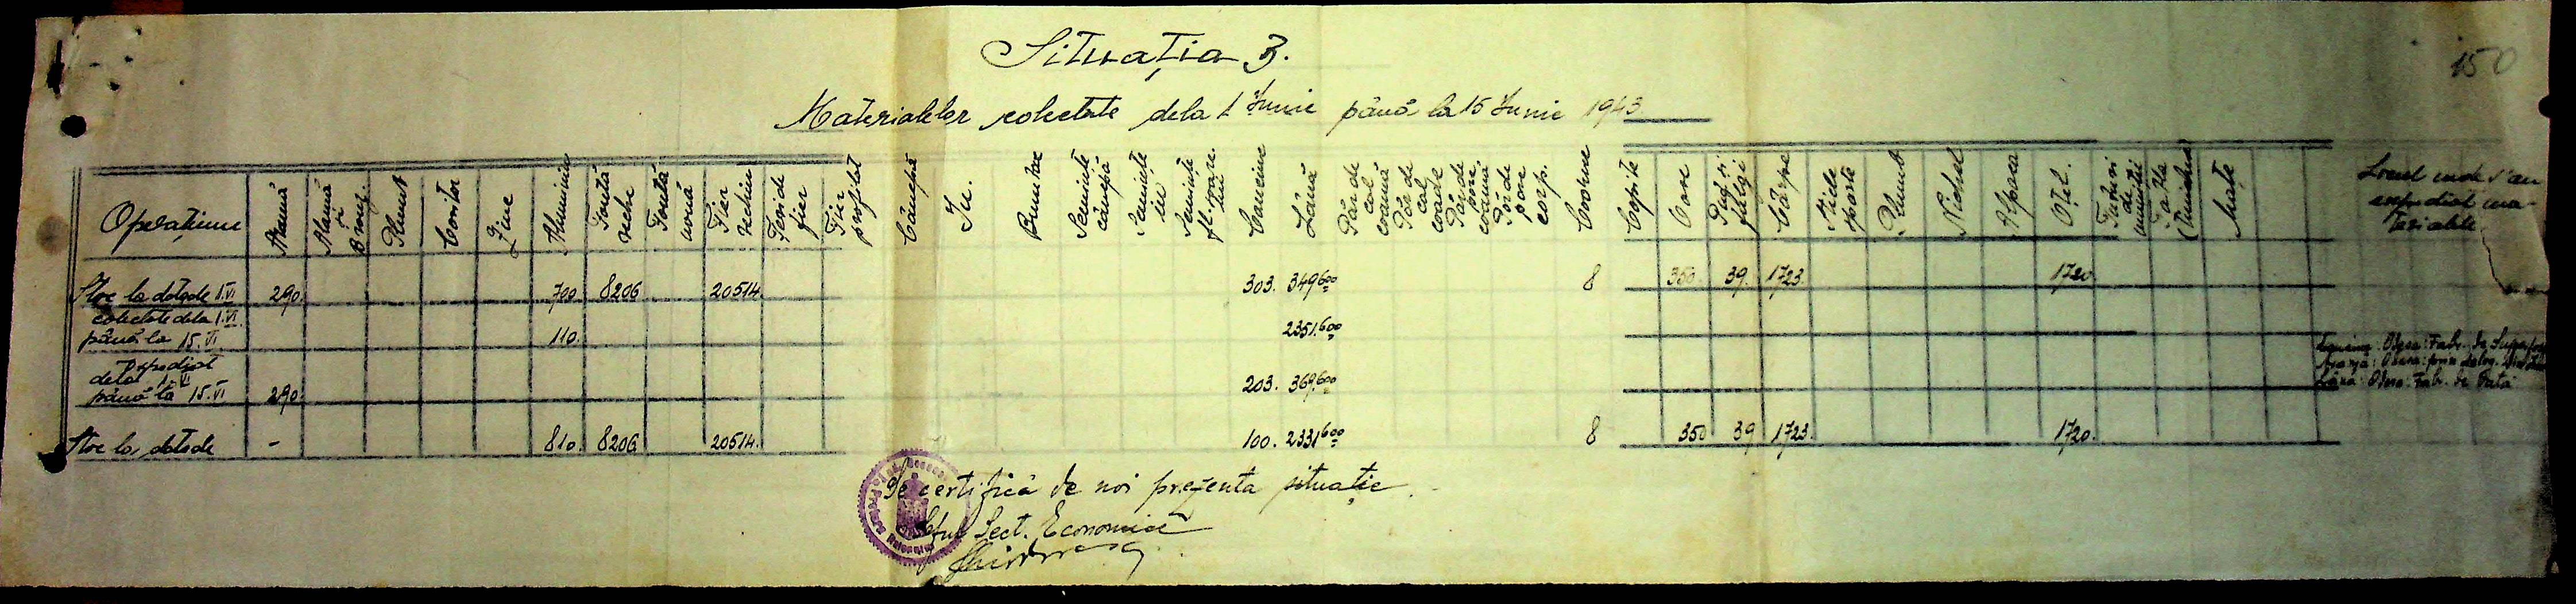 Situația 3.
150
Materialelor colectate dela 1 Iunie până la 15 Iunie 1943
Operațiune Alamă Alamă și Bronz Plumb Cositor Zinc Aluminiu Fontă veche Fontă nouă Fier vechiu Fier profilat Cânepă In. Bumbac Semințe cânepă Semințe in Semințe fl. soare Cauciuc Lână Păr de cal coamă Păr de cal coade Păr de porc coamă Păr de porc corp. Coarne Copite Oase Cârpe Piele Plumb Nichel Alpaca Oțel. Mațe Locul unde s'au expediat materialele
Stoc la data de 1.VI 290. 700. 8206 20514. 303. 349,600 8 350 39. 1723. 1720.
colectate dela 1.VI
până la 15.VI 110. 2351,600
Expediat
dela 1.VI
până la 15.VI 290. 203. 369,600
Odesa: Fab. de
Odesa: prin
Lână: Odesa: Fab. de
Stoc la data de - 810. 8206 20514. 100. 2331,600 8 350 39 1723. 1720.
Se certifică de noi prezenta situație.
Șeful Sect. Economică